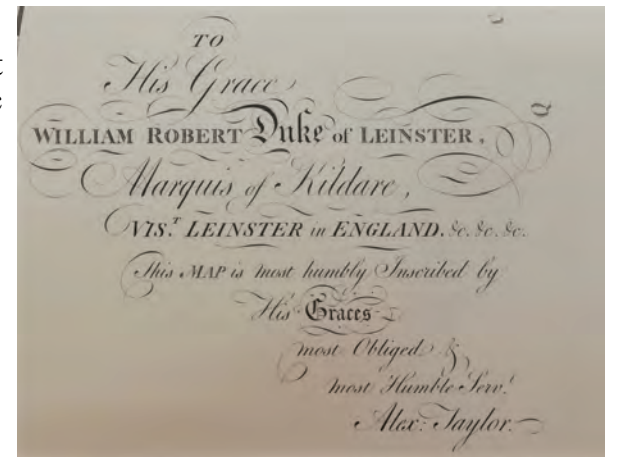 TO
His Grace
WILLIAM ROBERT Duke of LEINSTER,
Marquis of Kildare,
VIS.T LEINSTER in ENGLAND. &c. &c. &c.
This MAP is most humbly Inscribed by
His Graces
most Obliged &
most Humble Serv.t
Alex: Taylor.